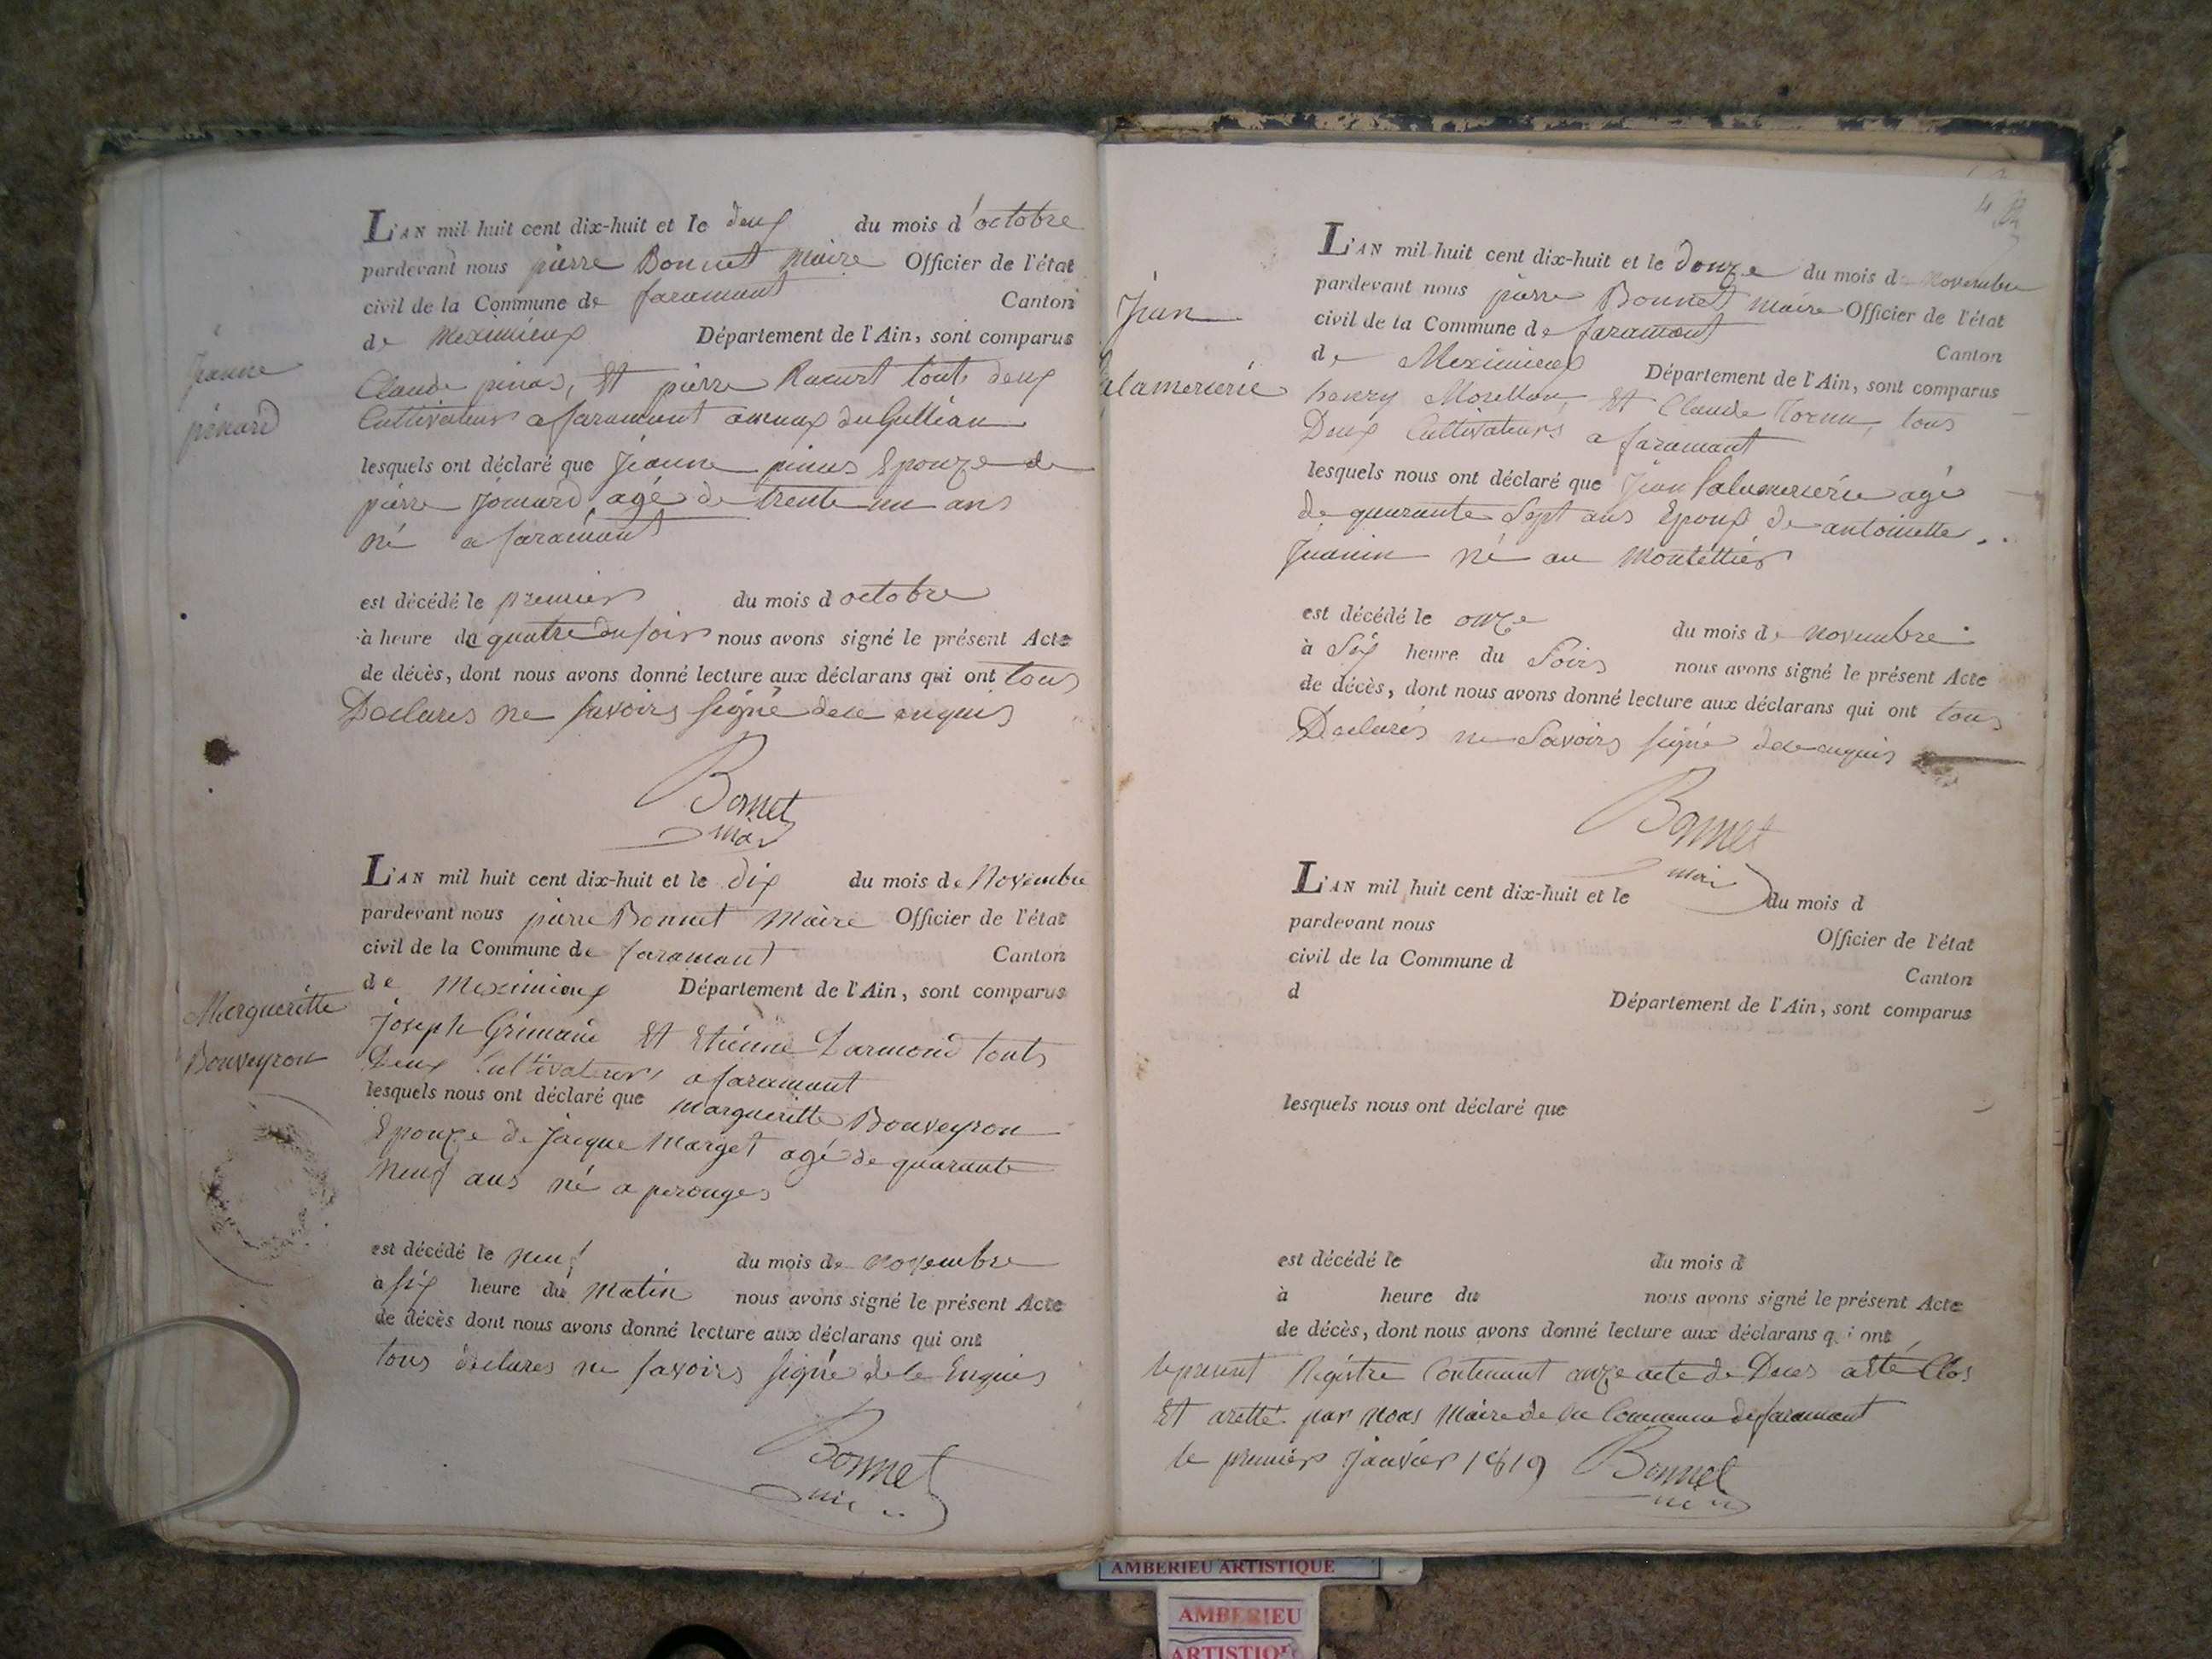 L'AN mil huit cent dix-huit et le deux du mois d'octobre
pardevant nous pierre Bonnet Maire Officier de l'état
civil de la Commune de faramant Canton
de Meximieux Département de l'Ain, sont comparus
Claude pinus, Et pierre touts deux
Cultivateurs a faramant
Jeanne
lesquels ont déclaré que Jeanne pinus Epouze de
pierre agé de trente un ans
né a faramant
est décédé le premier du mois d octobre
à heure de quatre du soirs nous avons signé le présent Acte
de décès, dont nous avons donné lecture aux déclarans qui ont tous
Declares ne savoirs signé dece enquis
Bonnet
L'AN mil huit cent dix-huit et le dix du mois de Novembre
pardevant nous pierre Bonnet Maire Officier de l'état
civil de la Commune de faramant Canton
de Meximieux Département de l'Ain, sont comparus
Margueritte
Bouveyron
Joseph Et Etienne touts
Deux Cultivateurs a faramant
lesquels nous ont déclaré que Margueritte Bouveyron
Epouze de Jacque Marget agé de quarante
neuf ans né a perouges
est décédé le neuf du mois de novembre
à six heure du Matin nous avons signé le présent Acte
de décès dont nous avons donné lecture aux déclarans qui ont
tous declares ne savoirs signé dece Enquis
Bonnet
L'AN mil huit cent dix-huit et le douze du mois de Novembre
pardevant nous pierre Bonnet Maire Officier de l'état
civil de la Commune de faramant Canton
de Meximieux Département de l'Ain, sont comparus
Jean
henry Et Claude tous
Deux Cultivateurs a faramant
lesquels nous ont déclaré que Jean agé
de quarante Sept ans Epoux de antoinette
Juanin né au Montellier
est décédé le onze du mois de novembre
à Six heure du Soirs nous avons signé le présent Acte
de décès, dont nous avons donné lecture aux déclarans qui ont tous
Declarés ne Savoirs signé dece enquis
Bonnet
L'AN mil huit cent dix-huit et le du mois d
pardevant nous Officier de l'état
civil de la Commune d Canton
d Département de l'Ain, sont comparus
lesquels nous ont déclaré que
est décédé le du mois d
à heure du nous avons signé le présent Acte
de décès, dont nous avons donné lecture aux déclarans qui ont
le present Régistre Contenant onze acte de Deces a été Clos
Et aretté par nous Maire de la Commune de faramant
le premier Janvier 1819 Bonnet
AMBERIEU ARTISTIQUE
AMBERIEU